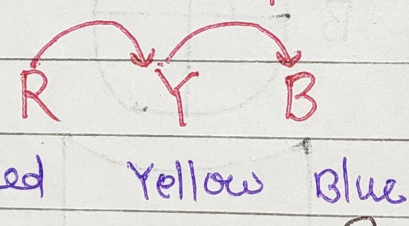 R Y B
ed Yellow Blue